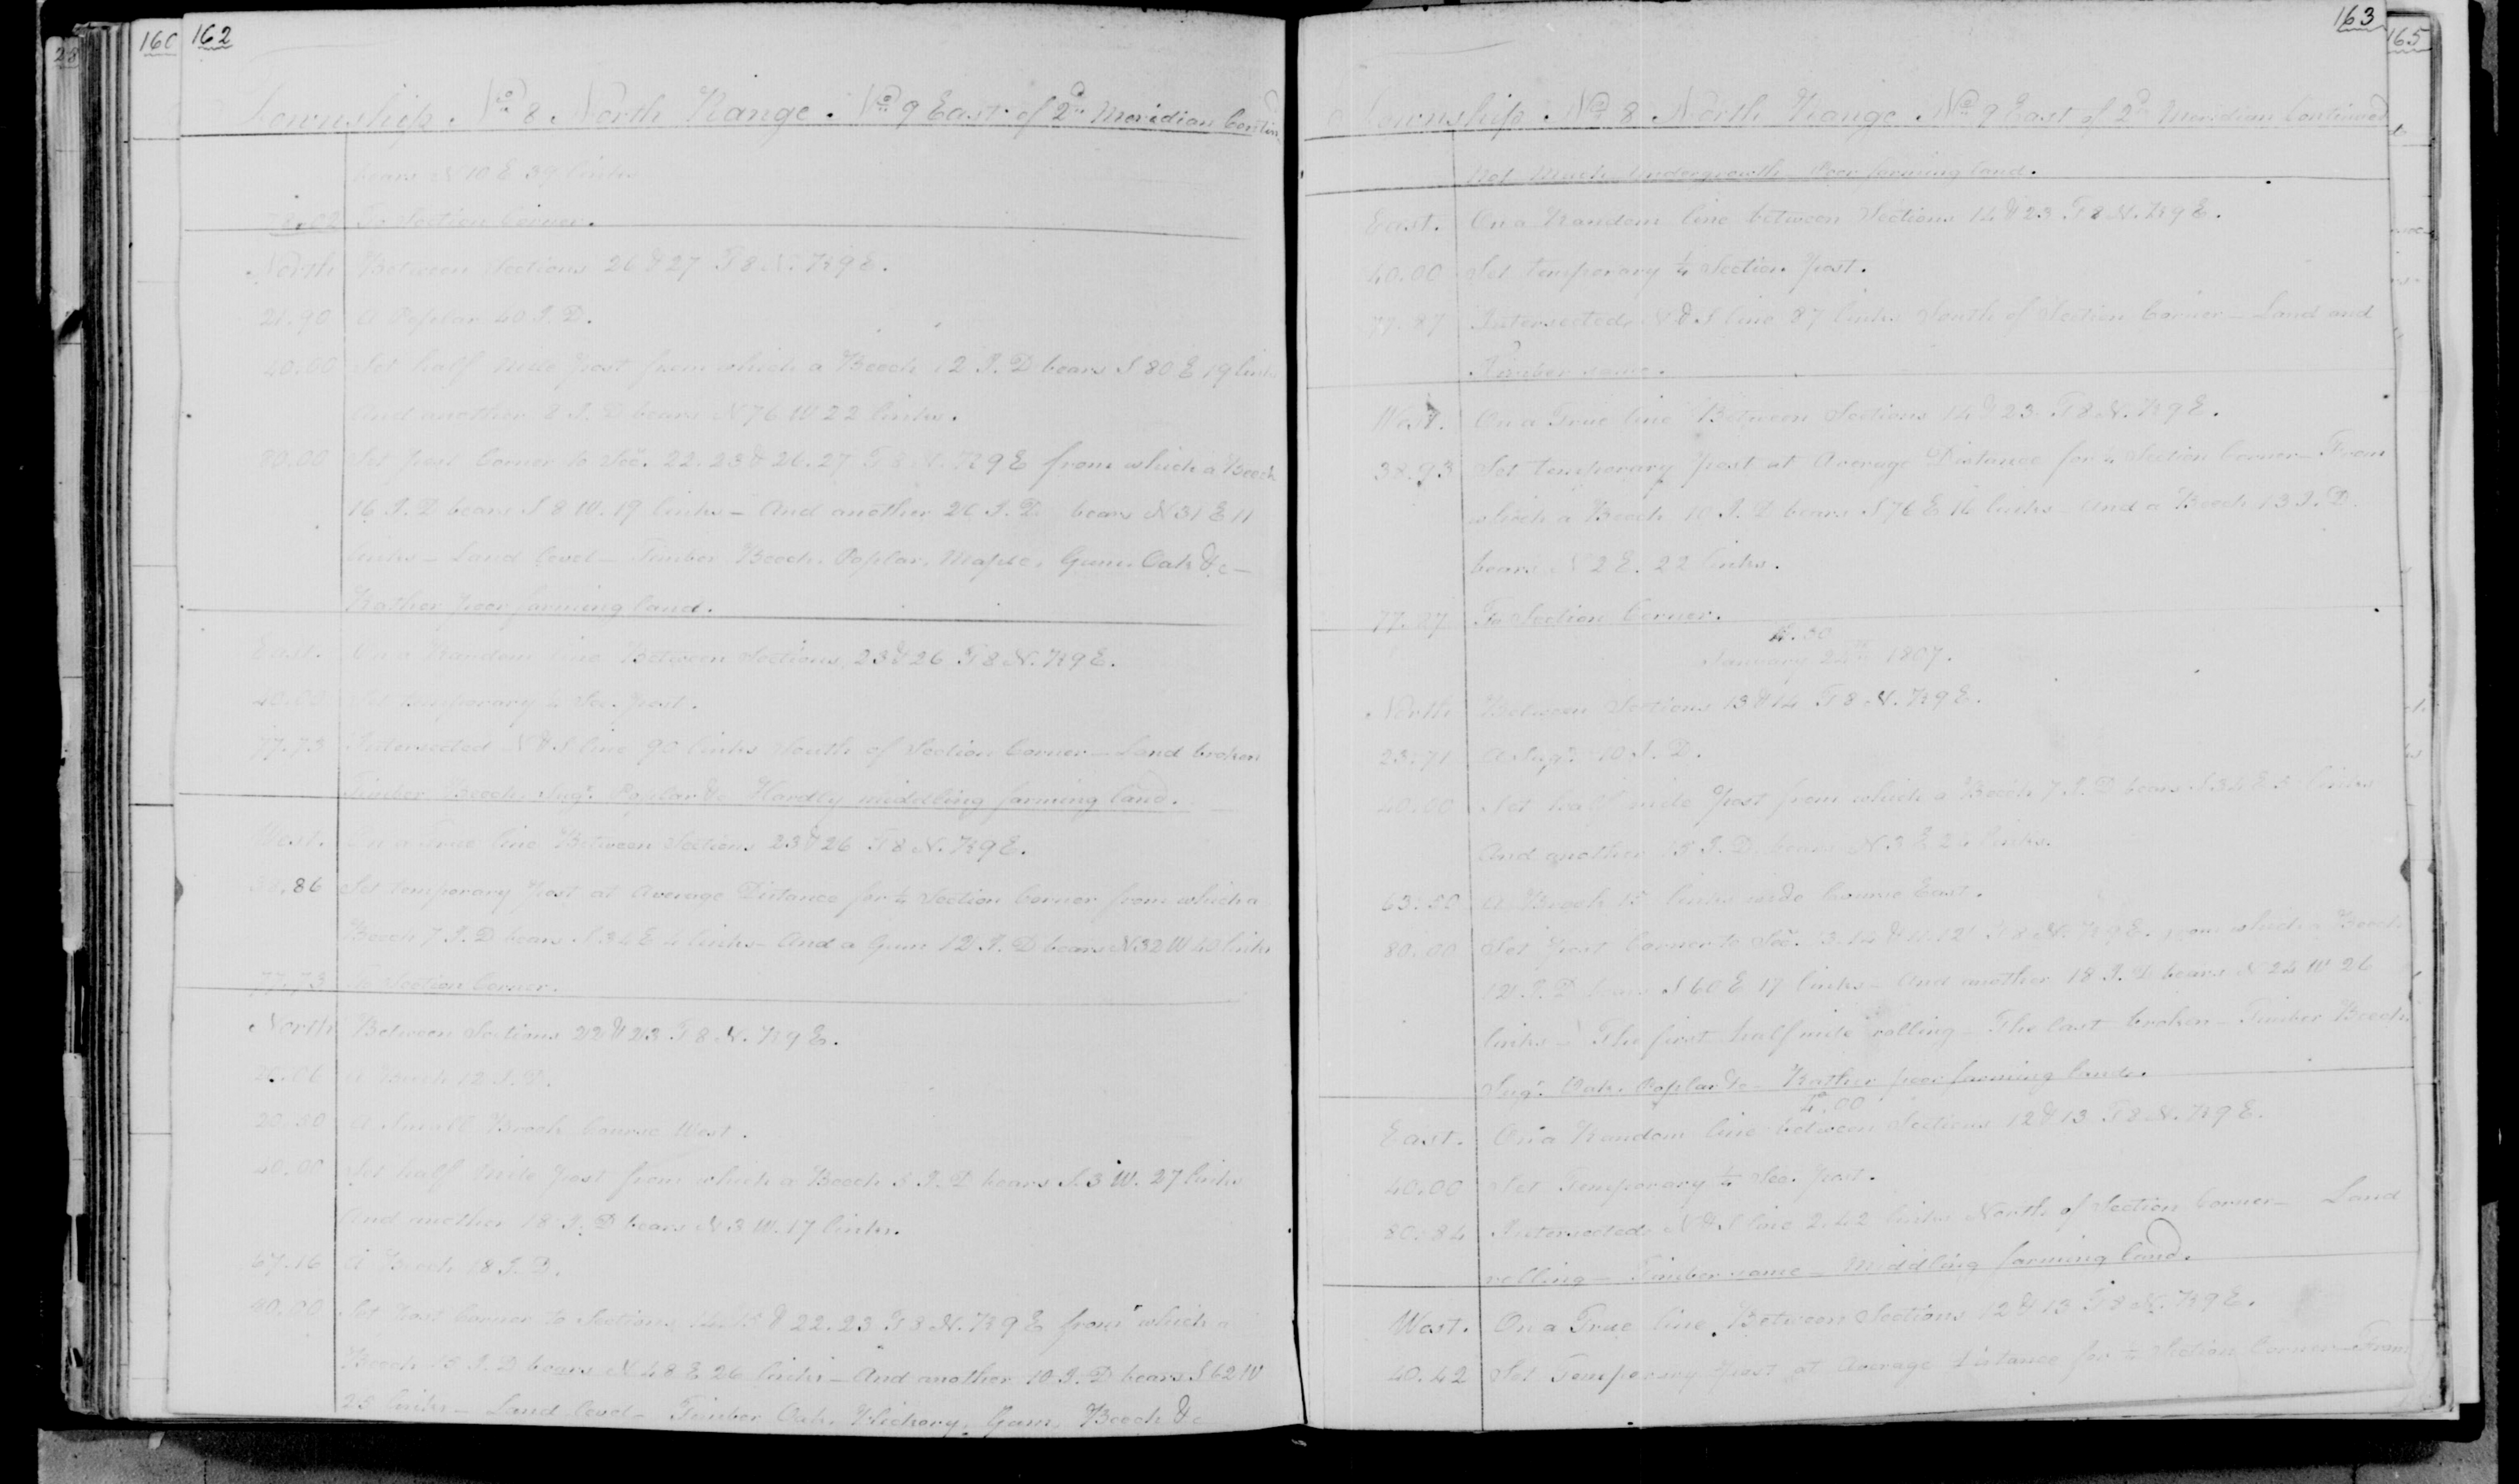 28
160
162
Township. No. 8 North Range. No. 9 East of 2d Meridian Contin
bears N 10 E 39 links
To Section Corner.
North Between Sections 26 & 27 T 8 N. R 9 E.
21.90 A Poplar 40 I. D.
40.00 Set half mile post from which a Beech 12 I. D bears S 80 E 19 links
And another 8 I. D bears N 76 W 22 links.
80.00 Set post Corner to Sec. 22. 23 & 26. 27 T 8 N. R 9 E from which a Beech
16 I. D bears S 8 W. 19 links – And another 20 I. D. bears N 31 E 11
links – Land level – Timber Beech, Poplar, Maple, Gum, Oak &c –
Rather poor farming land.
East. On a Random line Between Sections 23 & 26 T 8 N. R 9 E.
40.00 Set temporary ¼ Sec. post.
77.73 Intersected N & S line 90 links South of Section Corner – Land broken
Timber Beech, Sugr. Poplar &c Hardly middling farming land.
West. On a True line Between Sections 23 & 26 T 8 N. R 9 E.
38.86 Set temporary post at Average Distance for ¼ Section Corner from which a
Beech 7 I. D bears S 34 E 4 links – And a Gum 12 I. D bears N 32 W 40 links
77.73 To Section Corner.
North Between Sections 22 & 23 T 8 N. R 9 E.
A Beech 12 I. D.
20.50 A Small Brook Course West.
40.00 Set half Mile post from which a Beech 8 I. D bears S. 3 W. 27 links
And another 18 I. D bears N 3 W. 17 links.
67.16 A Beech 18 I. D.
80.00 Set post Corner to Sections 14. 15 & 22. 23 T 8 N. R 9 E from which a
Beech 15 I. D bears N 48 E 26 links – And another 10 I. D bears S 62 W
25 links – Land level – Timber Oak, Hickory, Gum, Beech &c
163
165
Township No. 8 North Range No. 9 East of 2d Meridian Continued
Not Much Undergrowth – Poor farming land.
East. On a Random line between Sections 14 & 23 T 8 N. R 9 E.
40.00 Set temporary ¼ Section post.
77.87 Intersected N & S line 87 links South of Section Corner – Land and
Timber same.
West. On a True line Between Sections 14 & 23 T 8 N. R 9 E.
38.93 Set temporary post at Average Distance for ¼ Section Corner – From
which a Beech 10 I. D bears S 76 E 16 links – And a Beech 13 I. D.
bears N 2 E. 22 links.
77.87 To Section Corner.
January 24th 1807.
North Between Sections 13 & 14 T 8 N. R 9 E.
23.71 A Sugr. 10 I. D.
40.00 Set half mile post from which a Beech 7 I. D bears S 34 E 5 links
And another 8 I. D. bears N. 3 E 24 links.
63.50 A Brook 15 links wide Course East.
80.00 Set post Corner to Sec. 13. 14 & 11. 12 T 8 N. R 9 E. from which a Beech
12 I. D bears S 60 E 17 links – And another 18 I. D bears N 24 W 26
links – The first half mile rolling – The last broken – Timber Beech
Sugr. Oak, Poplar &c – Rather poor farming land.
4.00
East. On a Random line between Sections 12 & 13 T 8 N. R 9 E.
40.00 Set Temporary ¼ Sec. post.
80.84 Intersected N & S line 2.42 links North of Section Corner – Land
rolling – Timber same – Middling farming land.
West. On a True line Between Sections 12 & 13 T 8 N. R 9 E.
40.42 Set Temporary post at Average distance for ¼ Section Corner – From